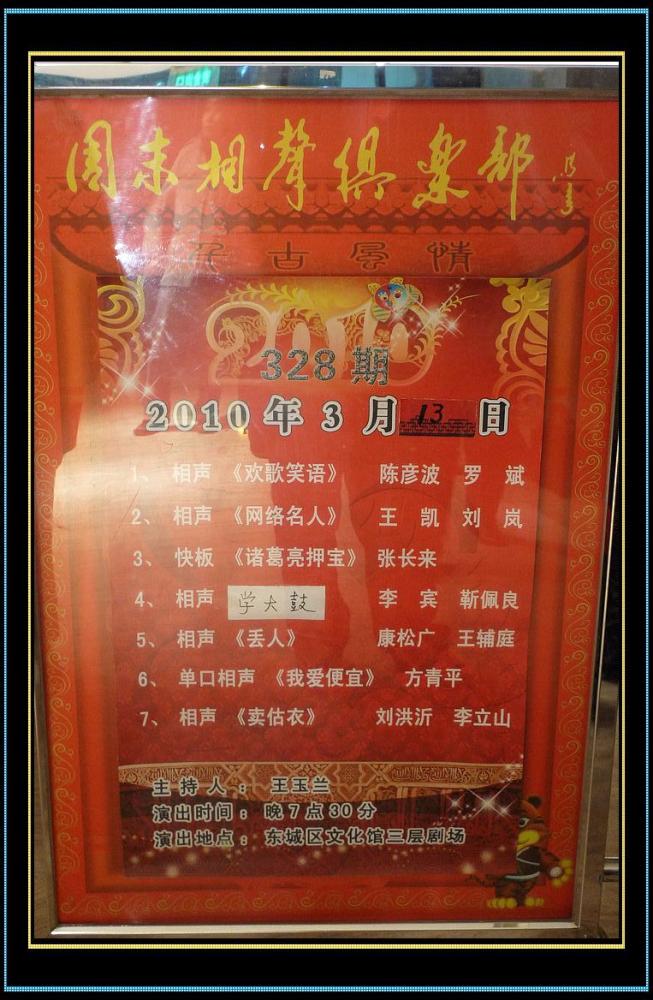 周末相聲俱樂部
古風情
2010
328期
2010年3月13日
1、 相声 《欢歌笑语》 陈彦波 罗 斌
2、 相声 《网络名人》 王 凯 刘 岚
3、 快板 《诸葛亮押宝》 张长来
4、 相声 学大鼓 李 宾 靳佩良
5、 相声 《丢人》 康松广 王辅庭
6、 单口相声 《我爱便宜》 方青平
7、 相声 《卖估衣》 刘洪沂 李立山
主 持 人 : 王玉兰
演出时间: 晚7点30分
演出地点: 东城区文化馆三层剧场